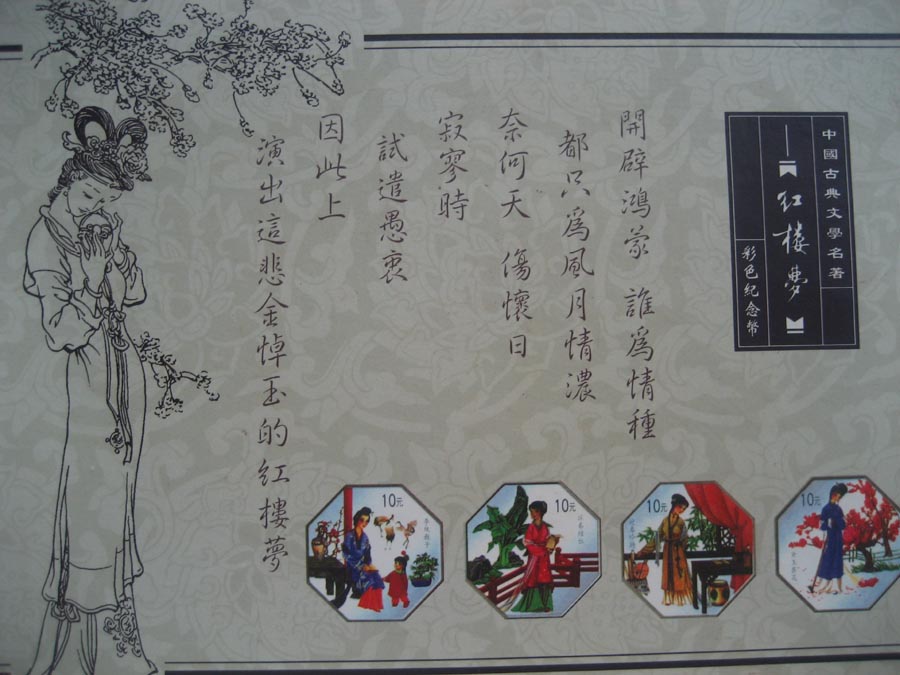 中國古典文學名著
紅樓夢
彩色紀念幣
開辟鴻蒙 誰爲情種
都只爲風月情濃
奈何天 傷懷日
寂寥時
試遣愚衷
因此上
演出這悲金悼玉的紅樓夢
10元
10元
10元
10元